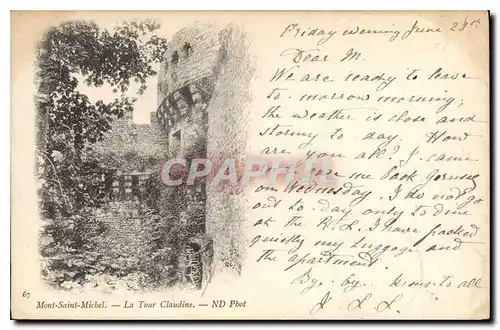 Friday evening June 28th
Dear M.
We are ready to leave
to-morrow morning;
the weather is close and
stormy to-day. How
are you all? I came
me back
on Wednesday. I do not go
out to-day only to dine
at the R.L. I have packed
quickly my luggage and
the apartment.
Bye-bye. to all
CPA
67 Mont-Saint-Michel. — La Tour Claudine. — ND Phot